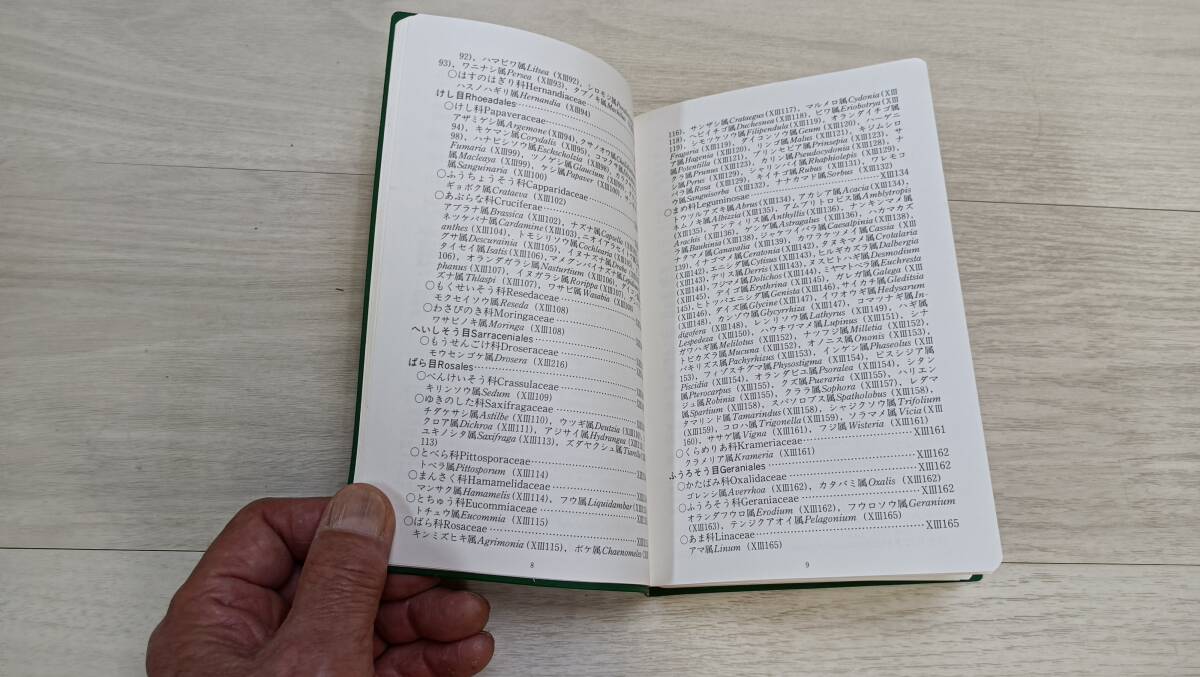 92), ハマビワ属Litsea (XIII92), シロモジ属
93), ワニナシ属Persea (XIII93), タブノキ属
○はすのはぎり科Hernandiaceae
ハスノハギリ属Hernandia (XIII94)
けし目Rhoeadales
○けし科Papaveraceae
アザミゲシ属Argemone (XIII94), クサノオウ属
94), キケマン属Corydalis (XIII95), コマクサ属
98), ハナビシソウ属Eschscholzia (XIII98),
Fumaria (XIII99), ツノゲシ属Glaucium (XIII
属Macleaya (XIII99), ケシ属Papaver (XIII
属Sanguinaria (XIII100)
○ふうちょうそう科Capparidaceae
ギョボク属Crataeva (XIII102)
○あぶらな科Cruciferae
アブラナ属Brassica (XIII102), ナズナ属Capsella
ネツケバナ属Cardamine (XIII103), ニオイアラセイ
anthes (XIII104), トモシリソウ属Cochlearia (XIII
グサ属Descurainia (XIII105), イヌナズナ属Draba
タイセイ属Isatis (XIII106), マメグンバイナズナ属
106), オランダガラシ属Nasturtium (XIII106), ダイコン
phanus (XIII107), イヌガラシ属Rorippa (XIII
ズナ属Thlaspi (XIII107), ワサビ属Wasabia (XIII
○もくせいそう科Resedaceae
モクセイソウ属Reseda (XIII108)
○わさびのき科Moringaceae
ワサビノキ属Moringa (XIII108)
へいしそう目Sarraceniales
○もうせんごけ科Droseraceae
モウセンゴケ属Drosera (XIII216)
ばら目Rosales
○べんけいそう科Crassulaceae
キリンソウ属Sedum (XIII109)
○ゆきのした科Saxifragaceae
チダケサシ属Astilbe (XIII110), ウツギ属Deutzia (XIII
クロア属Dichroa (XIII111), アジサイ属Hydrangea (XIII
ユキノシタ属Saxifraga (XIII113), ズダヤクシュ属Tiarella
113)
○とべら科Pittosporaceae
トベラ属Pittosporum (XIII114)
○まんさく科Hamamelidaceae
マンサク属Hamamelis (XIII114), フウ属Liquidambar (XIII
○とちゅう科Eucommiaceae
トチュウ属Eucommia (XIII115)
○ばら科Rosaceae
キンミズヒキ属Agrimonia (XIII115), ボケ属Chaenomeles (XIII
8
116), サンザシ属Crataegus (XIII117), マルメロ属Cydonia (XIII
118), ヘビイチゴ属Duchesnea (XIII118), ビワ属Eriobotrya (XIII
118), シモツケソウ属Filipendula (XIII119), オランダイチゴ属
Fragaria (XIII119), ダイコンソウ属Geum (XIII120), ハーゲニ
ア属Hagenia (XIII120), リンゴ属Malus (XIII120), キジムシロ
属Potentilla (XIII121), プリンセピア属Prinsepia (XIII123), サ
クラ属Prunus (XIII123), カリン属Pseudocydonia (XIII128), ナ
シ属Pyrus (XIII129), シャリンバイ属Rhaphiolepis (XIII129),
バラ属Rosa (XIII129), キイチゴ属Rubus (XIII131), ワレモコ
ウ属Sanguisorba (XIII132), ナナカマド属Sorbus (XIII132)
○まめ科Leguminosae XIII134
トウツルアズキ属Abrus (XIII134), アカシア属Acacia (XIII134),
ネムノキ属Albizzia (XIII135), アムブリトロピス属Amblytropis
(XIII135), アンティリス属Anthyllis (XIII136), ナンキンマメ属
Arachis (XIII136), ゲンゲ属Astragalus (XIII136), ハカマカズ
ラ属Baukinia (XIII138), ジャケツイバラ属Caesalpinia (XIII138),
ナタマメ属Canavalia (XIII139), カワラケツメイ属Cassia (XIII
139), イナゴマメ属Ceratonia (XIII142), タヌキマメ属Crotalaria
(XIII142), エニシダ属Cytisus (XIII143), ヒルギカズラ属Dalbergia
(XIII143), デリス属Derris (XIII143), ヌスビトハギ属Desmodium
(XIII144), フジマメ属Dolichos (XIII144), ミヤマトベラ属Euchresta
(XIII145), デイゴ属Erythrina (XIII145), ガレガ属Galega (XIII
145), ヒトツバエニシダ属Genista (XIII146), サイカチ属Gleditsia
(XIII146), ダイズ属Glycine (XIII147), イワオウギ属Hedysarum
(XIII148), カンゾウ属Glycyrrhiza (XIII), コマツナギ属In-
digofera (XIII148), レンリソウ属Lathyrus (XIII149), ハギ属
Lespedeza (XIII150), ハウチワマメ属Lupinus (XIII151), シナ
ガワハギ属Melilotus (XIII152), ナツフジ属Milletia (XIII152),
トビカズラ属Mucuna (XIII152), オノニス属Ononis (XIII153),
バキリズス属Pachyrhizus (XIII153), インゲン属Phaseolus (XIII
153), フィゾスチグマ属Physostigma (XIII154), ピスシジア属
Piscidia (XIII154), オランダビユ属Psoralea (XIII154), シタン
属Pterocarpus (XIII155), クズ属Pueraria (XIII155), ハリエン
ジュ属Robinia (XIII155), クララ属Sophora (XIII156), レダマ
属Spartium (XIII158), スパソロブス属Spatholobus (XIII158),
タマリンド属Tamarindus (XIII158), シャジクソウ属Trifolium
(XIII159), コロハ属Trigonella (XIII159), ソラマメ属Vicia (XIII
160), ササゲ属Vigna (XIII161), フジ属Wisteria (XIII161)
○くらめりあ科Krameriaceae XIII161
クラメリア属Krameria (XIII161)
ふうろそう目Geraniales XIII162
○かたばみ科Oxalidaceae XIII162
ゴレンシ属Averrhoa (XIII162), カタバミ属Oxalis (XIII162)
○ふうろそう科Geraniaceae XIII162
オランダフウロ属Erodium (XIII162), フウロソウ属Geranium
(XIII163), テンジクアオイ属Pelagonium (XIII165)
○あま科Linaceae XIII165
アマ属Linum (XIII165)
9